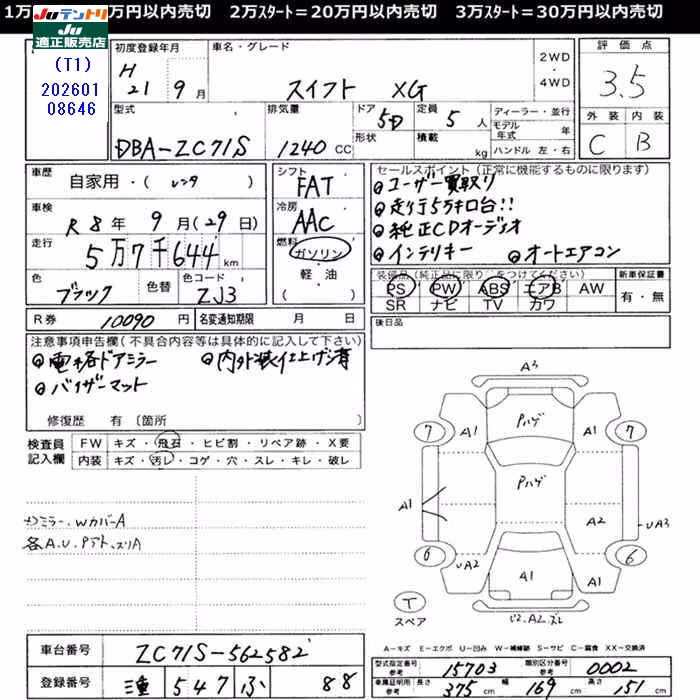 1万 万円以内売切 2万スタート=20万円以内売切 3万スタート=30万円以内売切
Juテントリ
Ju
適正販売店
(T1)
202601
08646
初度登録年月
H
21 9月
車名・グレード
スイフト XG
2WD
・
4WD
評価点
3.5
外装 内装
C B
型式
DBA-ZC71S
排気量
1240 CC
ドア 5D
形状
定員 5 人
積載 kg
ディーラー・並行
モデル年式 年
ハンドル 左・右
車歴
自家用・(レンタ)
車検
R8年 9月(29日)
走行
5万7千644km
色
ブラック
色替
色コード
ZJ3
シフト
FAT
冷房
AAC
燃料
ガソリン
軽油
( )
セールスポイント(正常に機能するものに限ります)
ユーザー買取り
走行5万キロ台!!
純正CDオーディオ
インテリキー オートエアコン
装備品(純正品に限り○をつけてください)
PS PW ABS エアB AW
SR ナビ TV カワ
新車保証書
有・無
R券 10090円
名変通知期限 月 日
後日品
注意事項申告欄(不具合内容等は具体的に記入して下さい)
電格ドアミラー 内外装仕上げ済
バイザーマット
修復歴 有〔箇所 〕
検査員
記入欄
FW キズ・飛石・ヒビ割・リペア跡・X要
内装 キズ・汚レ・コゲ・穴・スレ・キレ・破レ
メンミラー.WカバーA
各A.U.Pアト.スリA
A3
7 A1 Pハゲ A1 7
A1 Pハゲ A2 UA3
6 UA2 A1 A1 6
T
スペア
A2.スレ
A-キズ E-エクボ U-凹み W-補修跡 S-サビ C-腐食 XX-交換済
車台番号 ZC71S-562582
登録番号 三重 547 ふ 88
型式指定番号 参考 15703
類別区分番号 参考 0002
車庫証明用 参考 長さ 375cm 幅 169cm 高さ 151cm